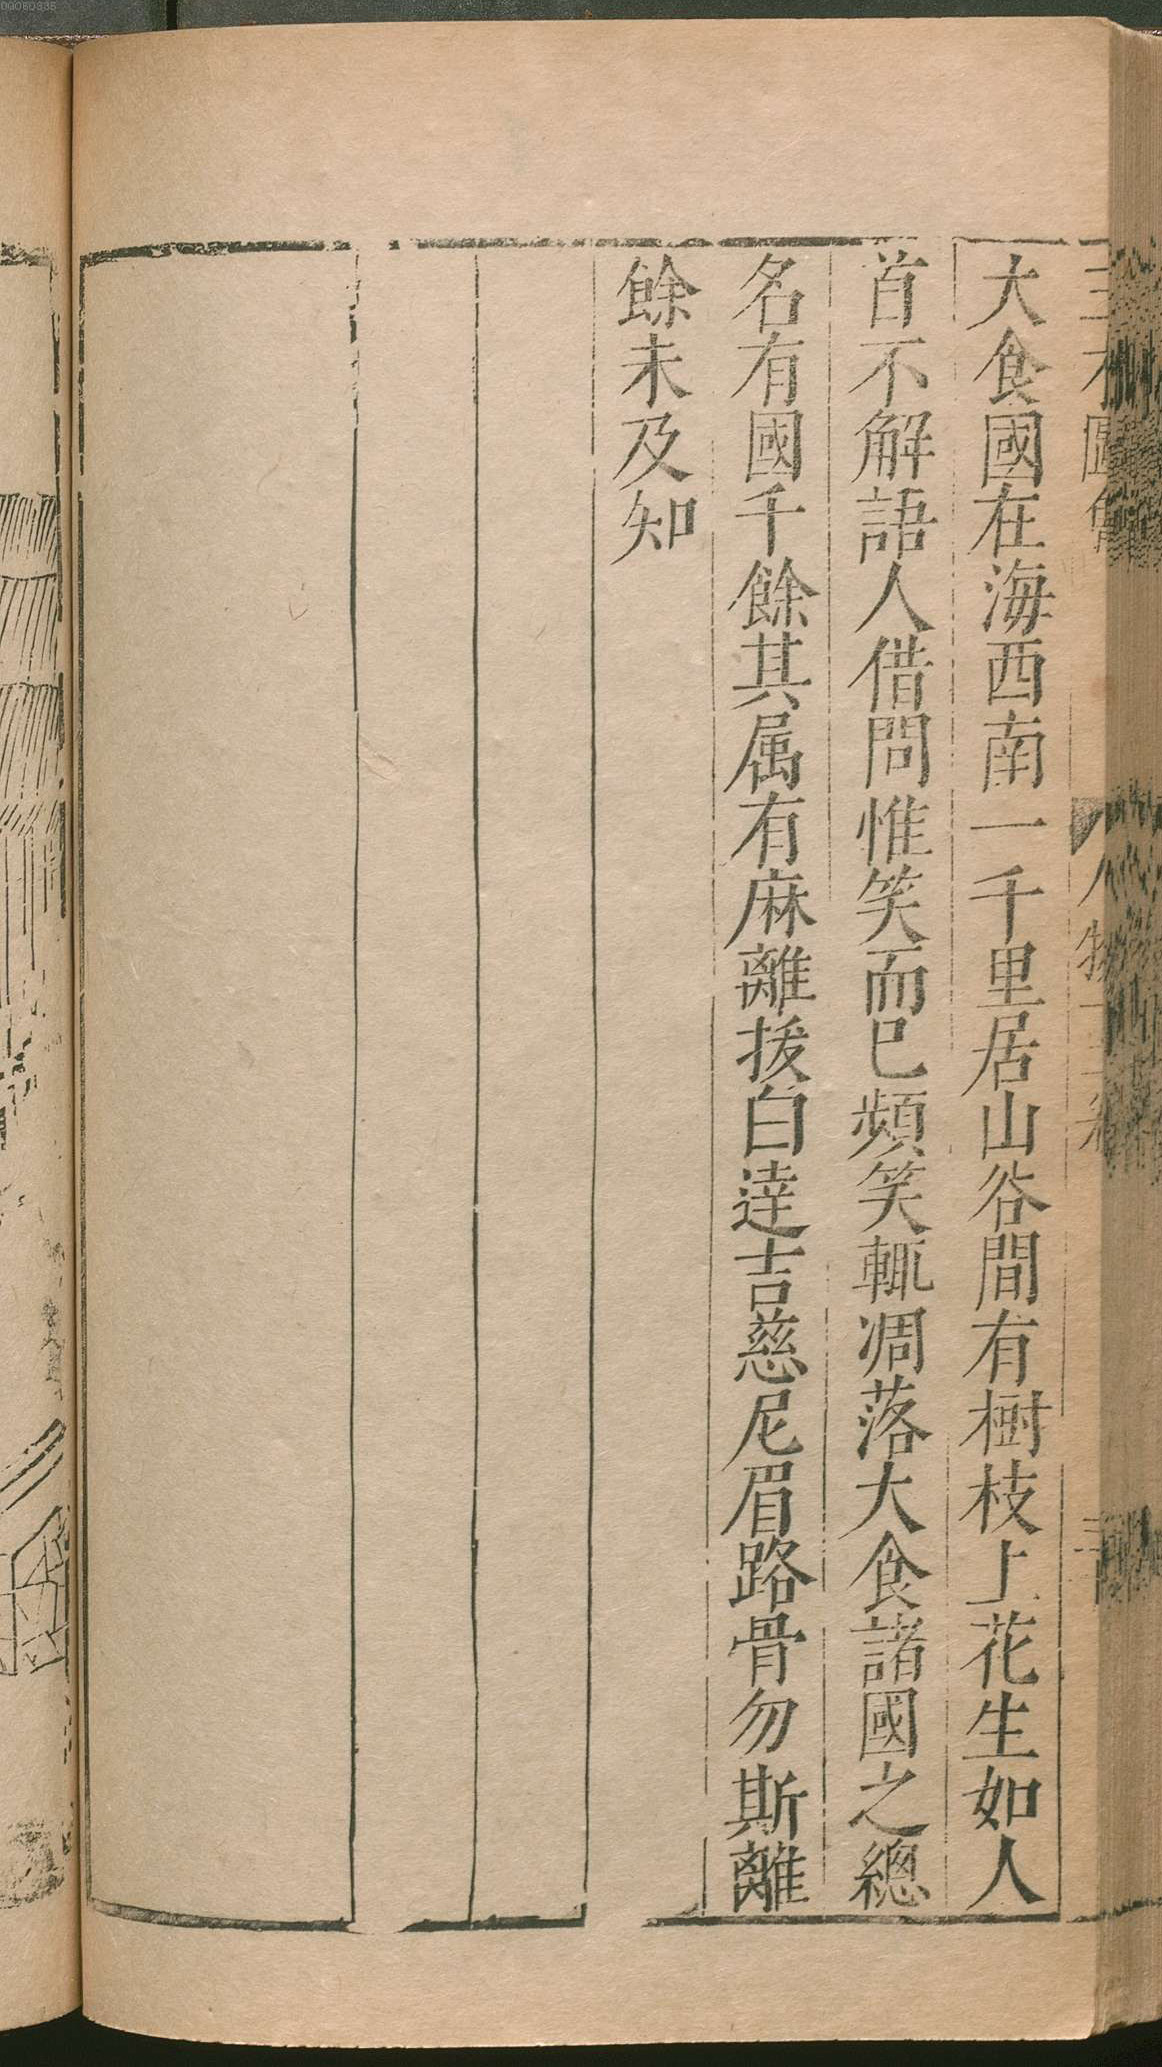 大食國在海西南一千里居山谷間有樹枝上花生如人
首不解語人借問惟笑而已頻笑輒凋落大食諸國之總
名有國千餘其属有麻離拔白達吉慈尼眉路骨勿斯離
餘未及知